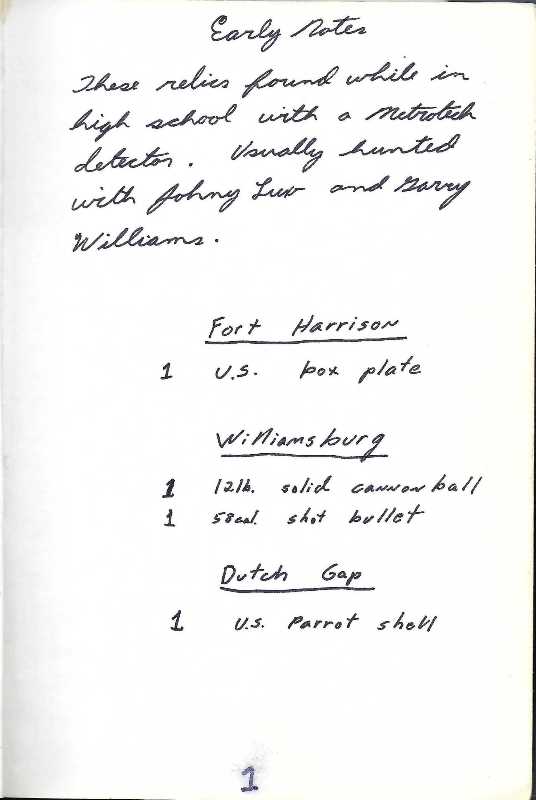 Early Notes
These relics found while in
high school with a Metrotech
detector. Usually hunted
with Johny Luv and Garry
Williams.
Fort Harrison
1 U.S. box plate
Williamsburg
1 12lb. solid cannon ball
1 58cal. shot bullet
Dutch Gap
1 U.S. Parrot shell
1